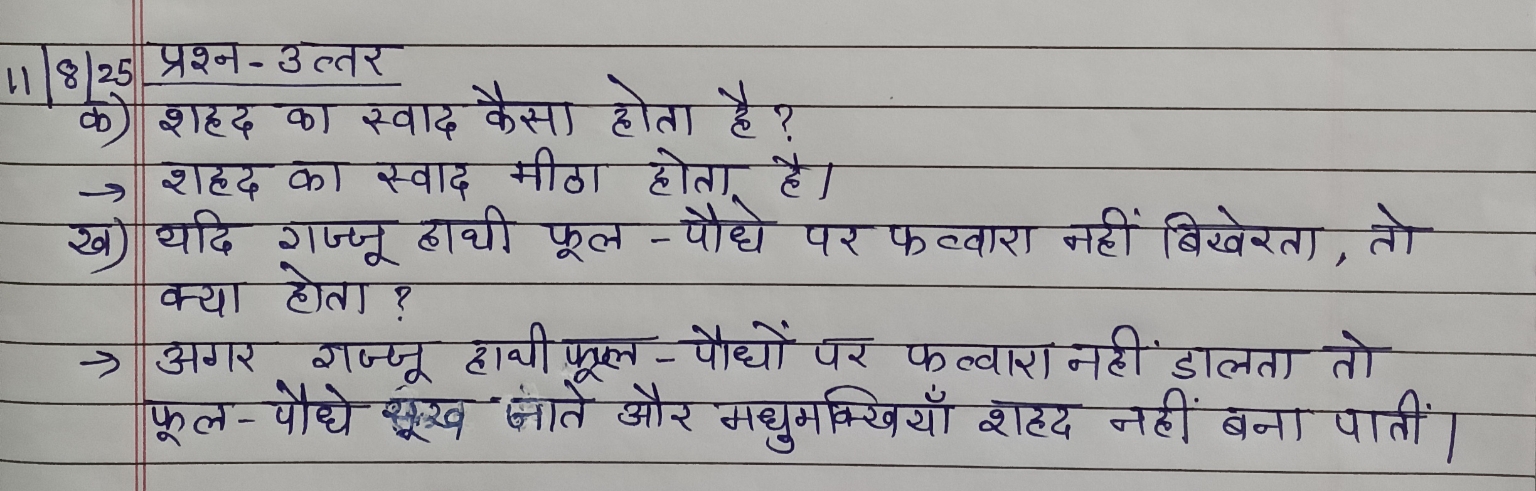 11/8/25 प्रश्न - उत्तर
क) शहद का स्वाद कैसा होता है?
→ शहद का स्वाद मीठा होता है।
ख) यदि गज्जू हाथी फूल - पौधे पर फव्वारा नहीं बिखेरता, तो
क्या होता ?
→ अगर गज्जू हाथी फूल - पौधों पर फव्वारा नहीं डालता तो
फूल - पौधे सूख जाते और मधुमक्खियाँ शहद नहीं बना पातीं।